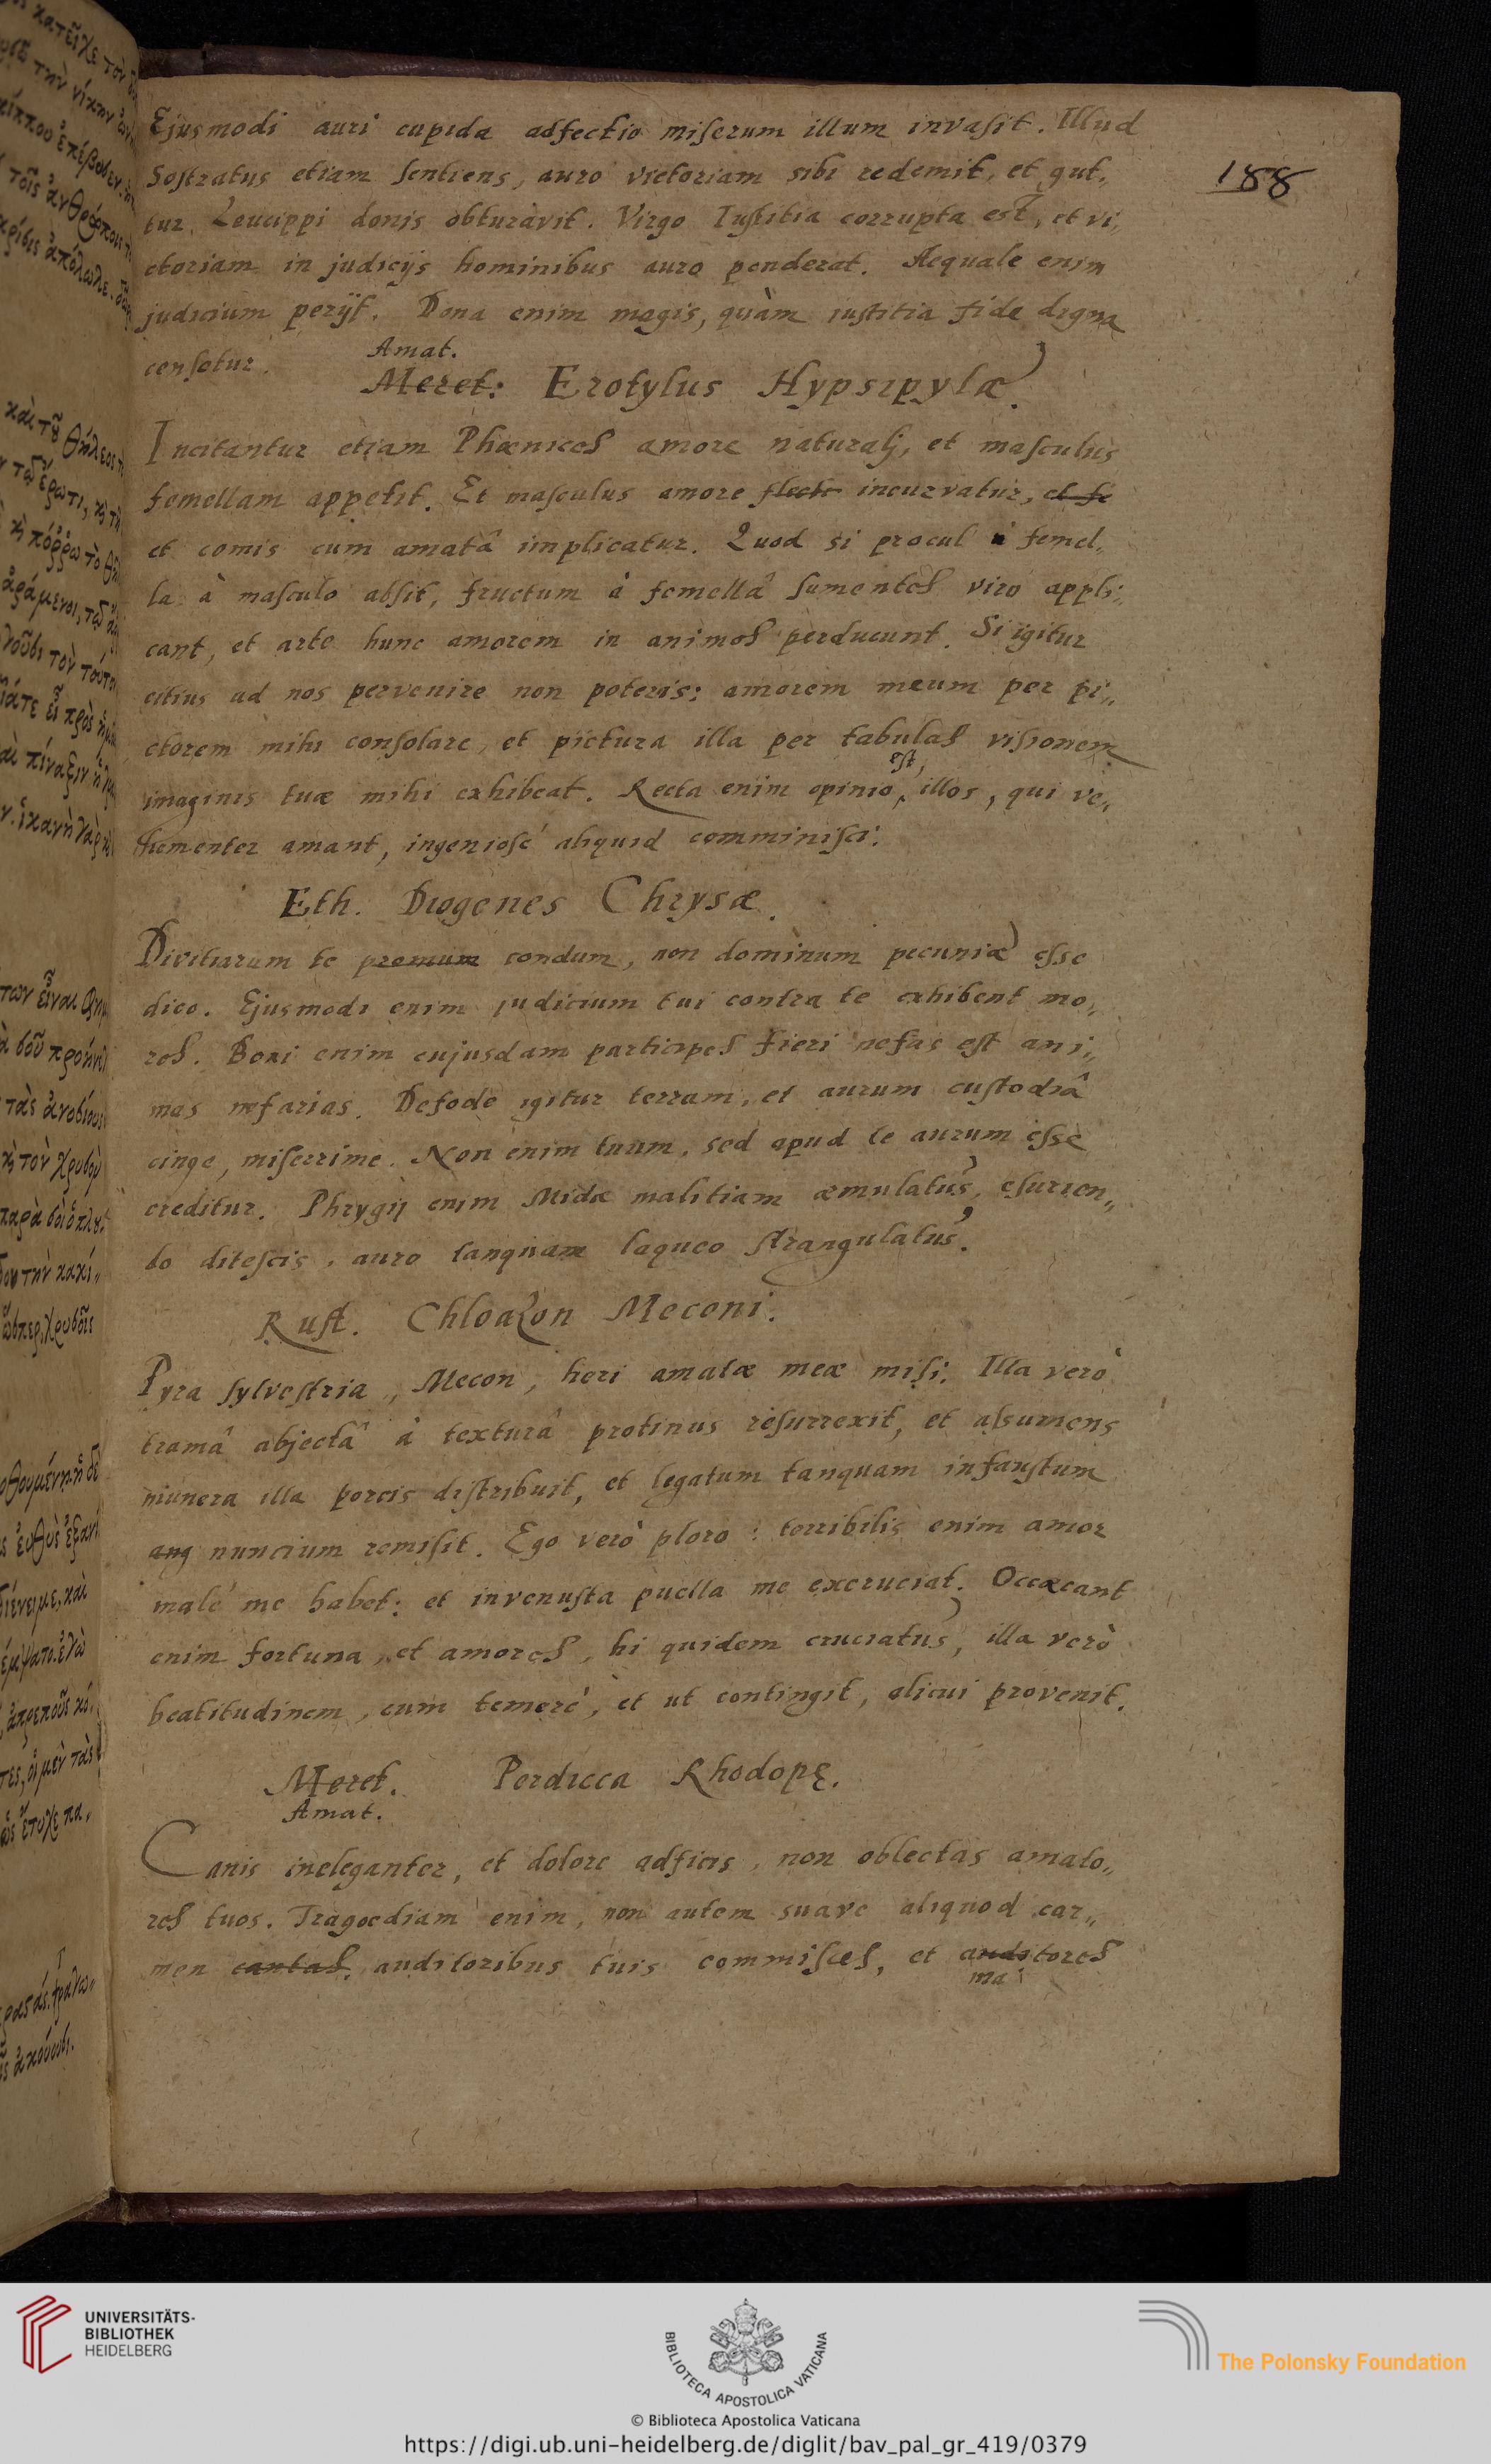 188
Ejusmodi auri cupida adfectio miserum illum invasit. Illud
Sostratus etiam sentiens, auro victoriam sibi redemit, et gut„
tur Leucippi donis obturavit. Virgo Iustitia corrupta est, et vi„
ctoriam in judicijs hominibus auro ponderat. Aequale enim
judicium perijt. Dona enim magis, quàm iustitia fide digna
censetur.
Amat.
Meret: Erotylus Hypsipylæ.
Incitantur etiam Phœnices amore naturalj, et masculus
femellam appetit. Et masculus amore flecti incurvatur, et se
et comis cum amatâ implicatur. Quod si procul femel„
la à masculo absit, fructum à femellâ sumentes viro appli„
cant, et arte hunc amorem in animos perducunt. Si igitur
citius ad nos pervenire non poteris: amorem meum per pi„
ctorem mihi consolare, et pictura illa per tabulas visionem
imaginis tuæ mihi exhibeat. Recta enim opinio est, illos, qui ve„
hementer amant, ingeniosé aliquid comminisci.
Eth. Diogenes Chrysæ.
Divitiarum te promum condum, non dominum pecuniæ esse
dico. Ejusmodi enim judicium tui contra te exhibent mo„
res. Boni enim cujusdam participes fieri nefas est ani„
mas nefarias. Defode igitur terram, et aurum custodiâ
cinge, miserrime. Non enim tuum, sed apud te aurum esse
creditur. Phrygij enim Midæ malitiam æmulatus, esurien„
do ditescis, auro tanquam laqueo strangulatus.
Rust. Chloazon Meconi.
Pyra sylvestria, Mecon, heri amatæ meæ misi. Illa verò
tramâ abjectâ à texturâ protinus resurrexit, et assumens
munera illa porcis distribuit, et legatum tanquam infaustum
ang nuncium remisit. Ego verò ploro: terribilis enim amor
malé me habet: et invenusta puella me excruciat. Occæcant
enim fortuna, et amores, hi quidem cruciatus, illa verò
beatitudinem, cum temeré, et ut contingit, alicui provenit.
Meret. Perdicca Rhodopę.
Amat.
Canis ineleganter, et dolore adficis, non oblectas amato„
res tuos. Tragoediam enim, non autem suave aliquod car„
men cantas, auditoribus tuis commisces, et auditores
ma
UNIVERSITÄTS-
BIBLIOTHEK
HEIDELBERG
BIBLIOTECA APOSTOLICA VATICANA
The Polonsky Foundation
© Biblioteca Apostolica Vaticana
https://digi.ub.uni-heidelberg.de/diglit/bav_pal_gr_419/0379